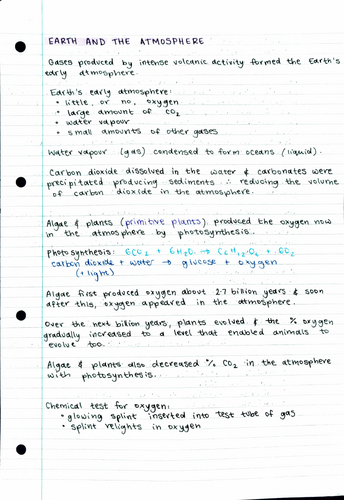 EARTH AND THE ATMOSPHERE
Gases produced by intense volcanic activity formed the Earth's
early atmosphere.
Earth's early atmosphere:
• little, or no, oxygen
• large amount of CO₂
• water vapour
• small amounts of other gases
Water vapour (gas) condensed to form oceans (liquid).
Carbon dioxide dissolved in the water & carbonates were
precipitated producing sediments ∴ reducing the volume
of carbon dioxide in the atmosphere.
Algae & plants (primitive plants) produced the oxygen now
in the atmosphere by photosynthesis.
Photosynthesis: 6CO₂ + 6H₂O → C₆H₁₂O₆ + 6O₂
carbon dioxide + water → glucose + oxygen
(+ light)
Algae first produced oxygen about 2.7 billion years & soon
after this, oxygen appeared in the atmosphere.
Over the next billion years, plants evolved & the % oxygen
gradually increased to a level that enabled animals to
evolve too.
Algae & plants also decreased % CO₂ in the atmosphere
with photosynthesis.
Chemical test for oxygen:
• glowing splint inserted into test tube of gas
• splint relights in oxygen